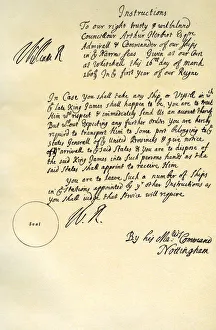 Instructions
William R
To our right trusty & welbeloved
Councellour Arthur Herbert Esqre
Admirall & Commander of our Ships
in their Narrow seas Given at our Court
at Whitehall this 16th day of March
168 In ye first Year of our Reigne
In Case you shall take any Ship or Vessell in wch
ye late King James shall happen to be, you are to treat
Him wth respect & immediately send Us an account thereof
But without Expecting any further Order you are hereby
requird to transport Him to some port belonging to ye
States Generall of ye United Provinces & give notice
of yr arrivall to ye said States & you are to dispose of
the said King James into such persons hands as the
said States shall appoint to receive Him
You are to leave such a number of Ships
in ye Stations appointed by yr other Instructions as
you shall judge that Service will require
W. R.
Seal
By his Mats Command
Nottingham